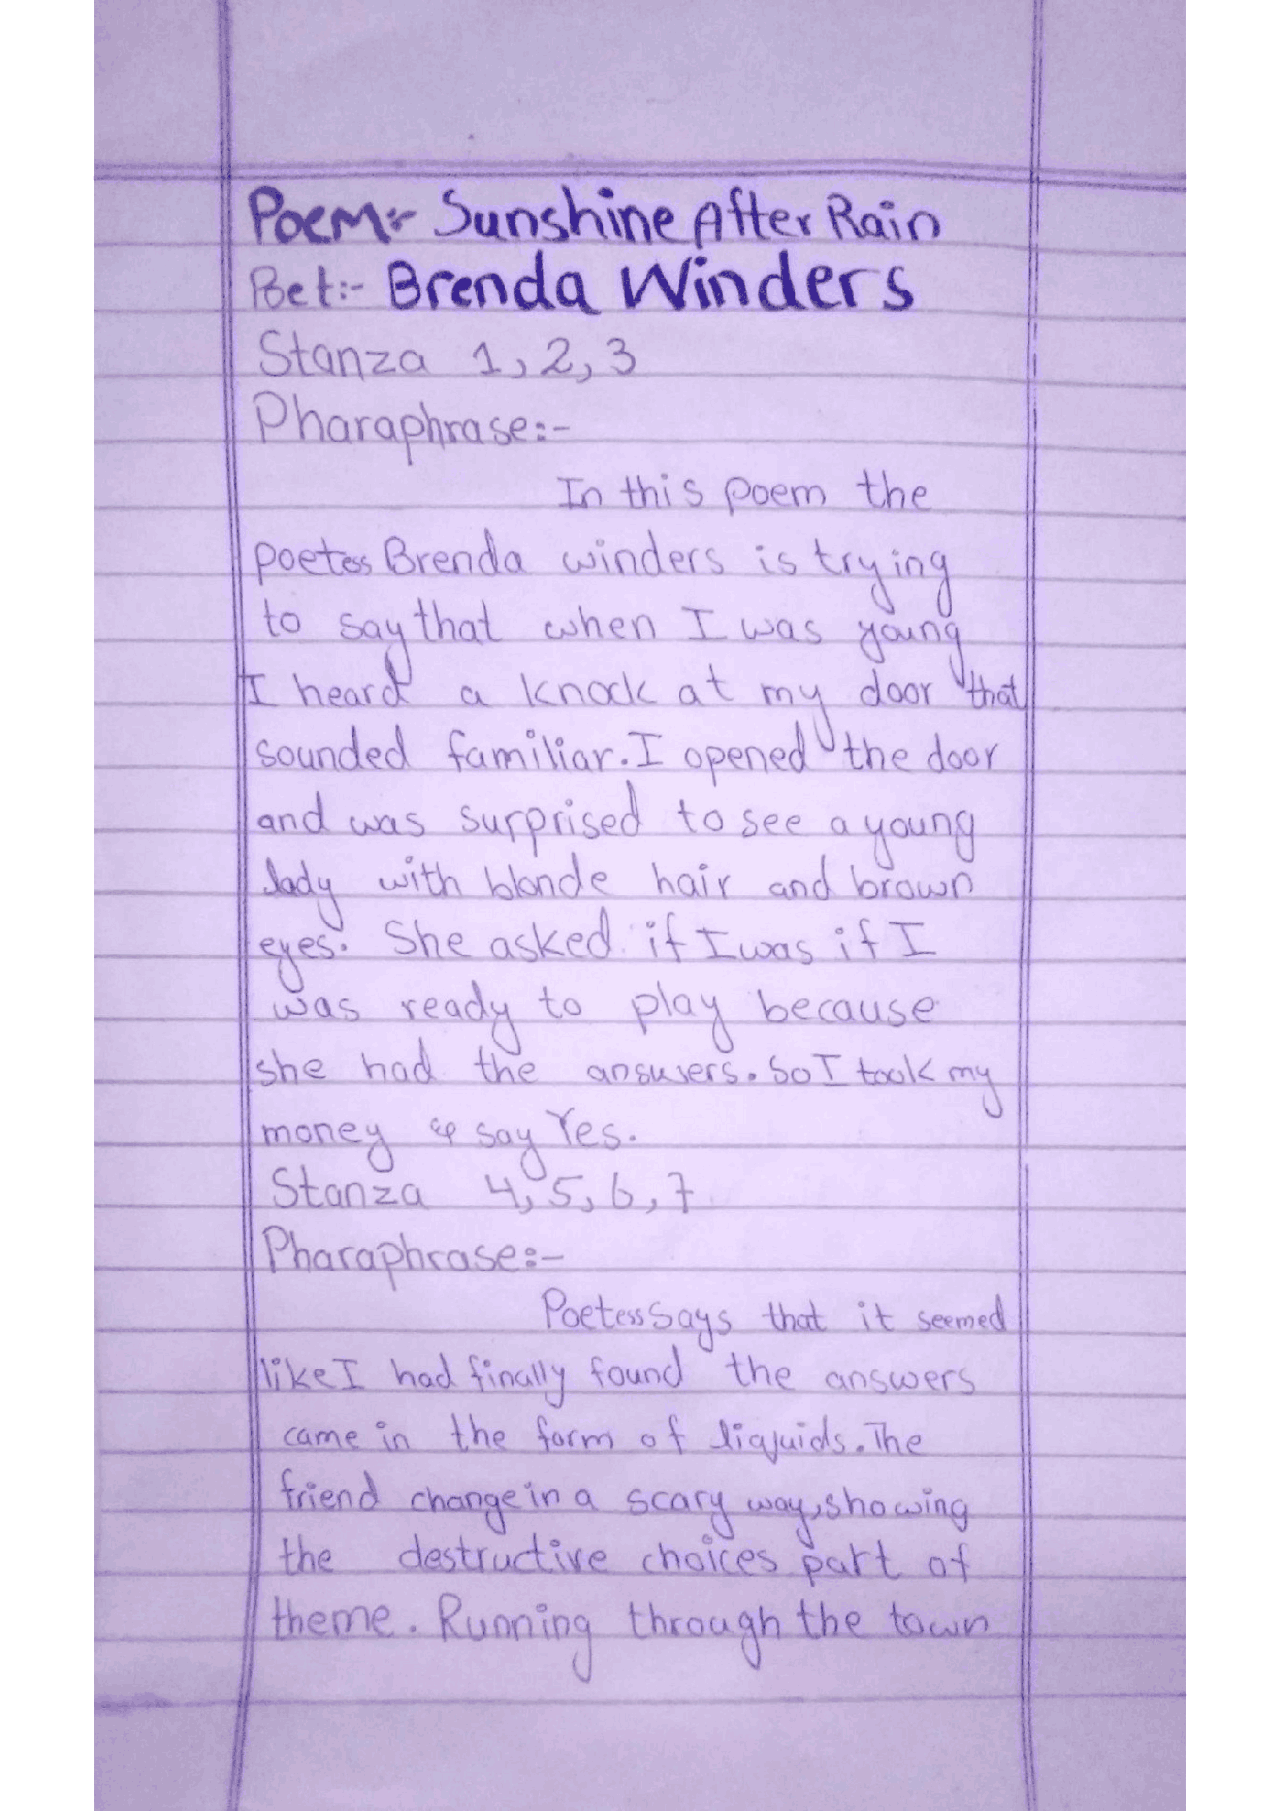 Poem:- Sunshine After Rain
Poet:- Brenda Winders
Stanza 1, 2, 3
Pharaphrase:-
In this poem the
poetess Brenda winders is trying
to say that when I was young
I heard a knock at my door that
sounded familiar. I opened the door
and was surprised to see a young
lady with blonde hair and brown
eyes. She asked if I was if I
was ready to play because
she had the answers. So I took my
money & say Yes.
Stanza 4, 5, 6, 7
Pharaphrase:-
Poetess Says that it seemed
like I had finally found the answers
came in the form of liqiuids. The
friend change in a scary way, showing
the destructive choices part of
theme. Running through the town